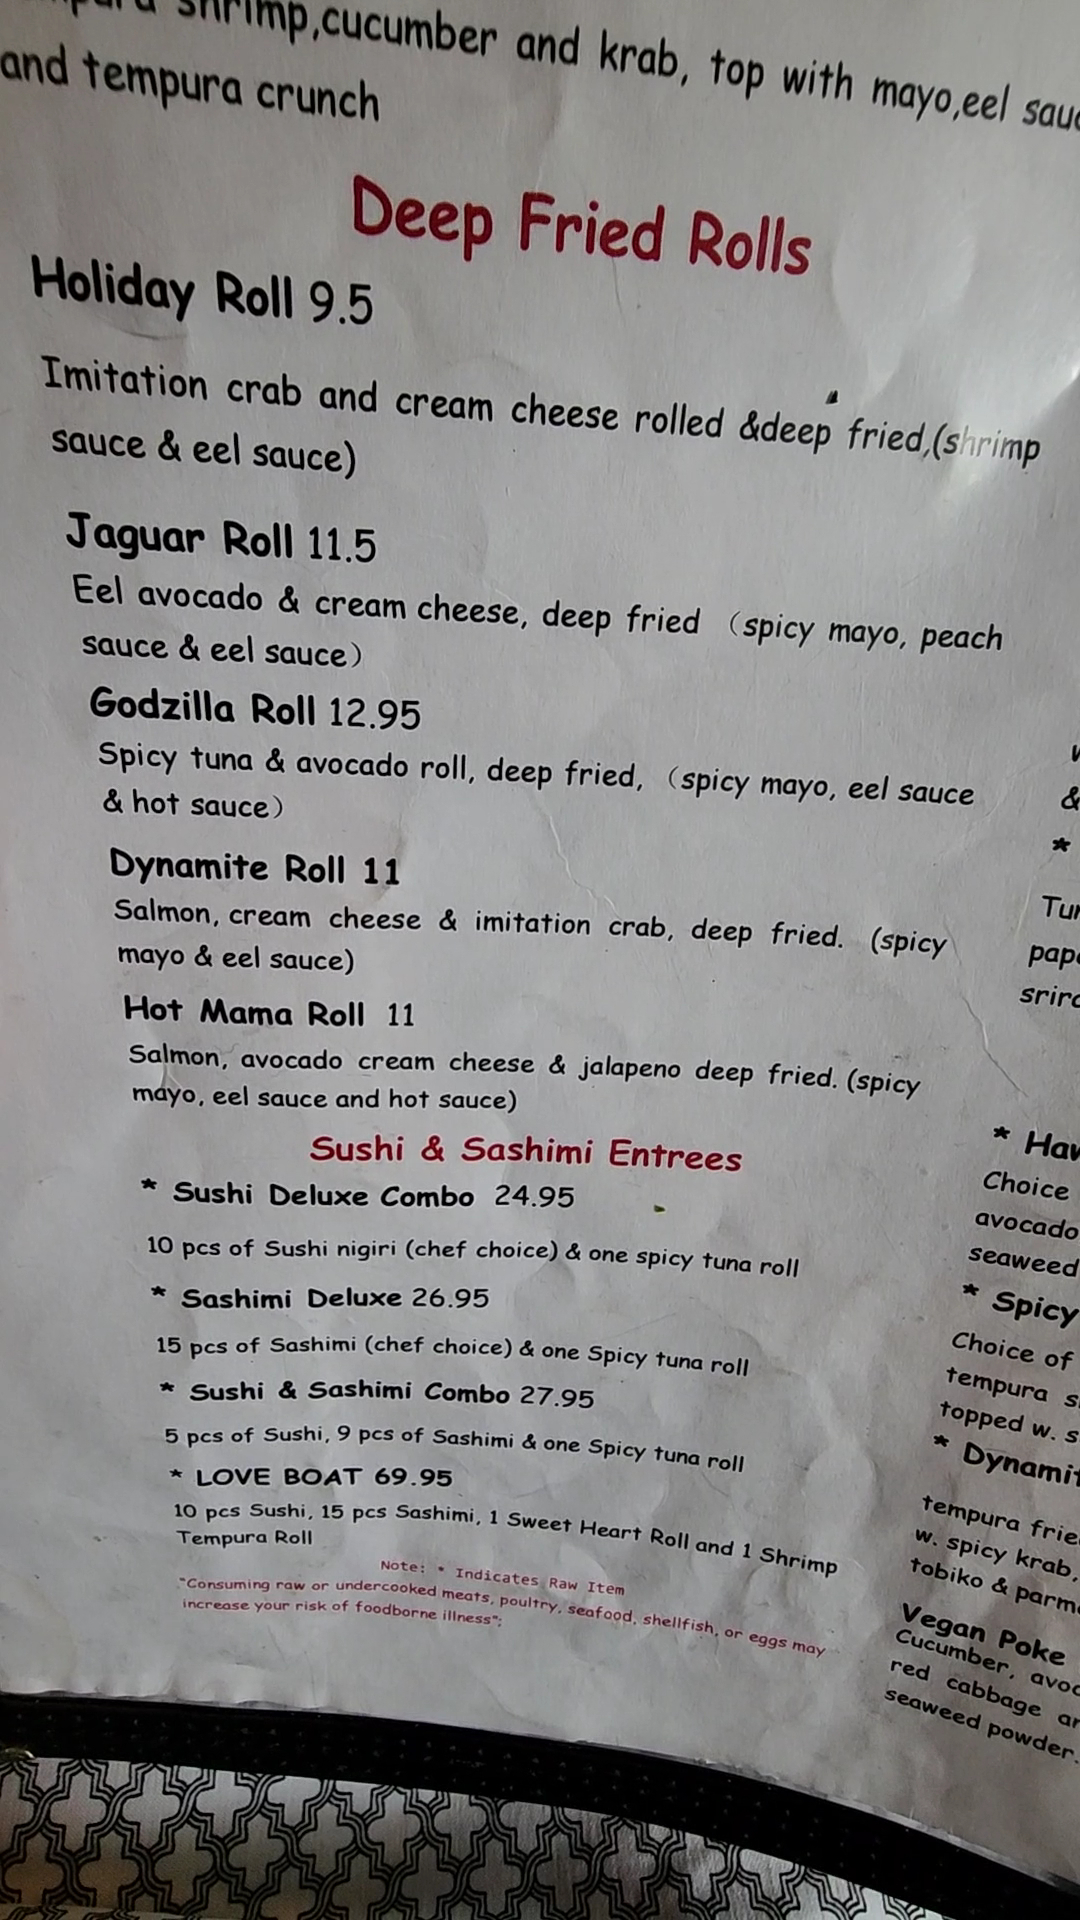 shrimp,cucumber and krab, top with mayo,eel
and tempura crunch
Deep Fried Rolls
Holiday Roll 9.5
Imitation crab and cream cheese rolled &deep fried,(shrimp
sauce & eel sauce)
Jaguar Roll 11.5
Eel avocado & cream cheese, deep fried （spicy mayo, peach
sauce & eel sauce）
Godzilla Roll 12.95
Spicy tuna & avocado roll, deep fried, （spicy mayo, eel sauce
& hot sauce）
Dynamite Roll 11
Salmon, cream cheese & imitation crab, deep fried. (spicy
mayo & eel sauce)
Hot Mama Roll 11
Salmon, avocado cream cheese & jalapeno deep fried. (spicy
mayo, eel sauce and hot sauce)
Sushi & Sashimi Entrees
* Sushi Deluxe Combo 24.95
10 pcs of Sushi nigiri (chef choice) & one spicy tuna roll
* Sashimi Deluxe 26.95
15 pcs of Sashimi (chef choice) & one Spicy tuna roll
* Sushi & Sashimi Combo 27.95
5 pcs of Sushi, 9 pcs of Sashimi & one Spicy tuna roll
* LOVE BOAT 69.95
10 pcs Sushi, 15 pcs Sashimi, 1 Sweet Heart Roll and 1 Shrimp
Tempura Roll
Note: * Indicates Raw Item
"Consuming raw or undercooked meats, poultry, seafood, shellfish, or eggs may
increase your risk of foodborne illness";
&
*
*
Choice
avocado
seaweed
* Spicy
Choice of
tempura
topped w.
*
tempura
w. spicy krab,
tobiko &
Vegan Poke
Cucumber,
red cabbage
seaweed powder.